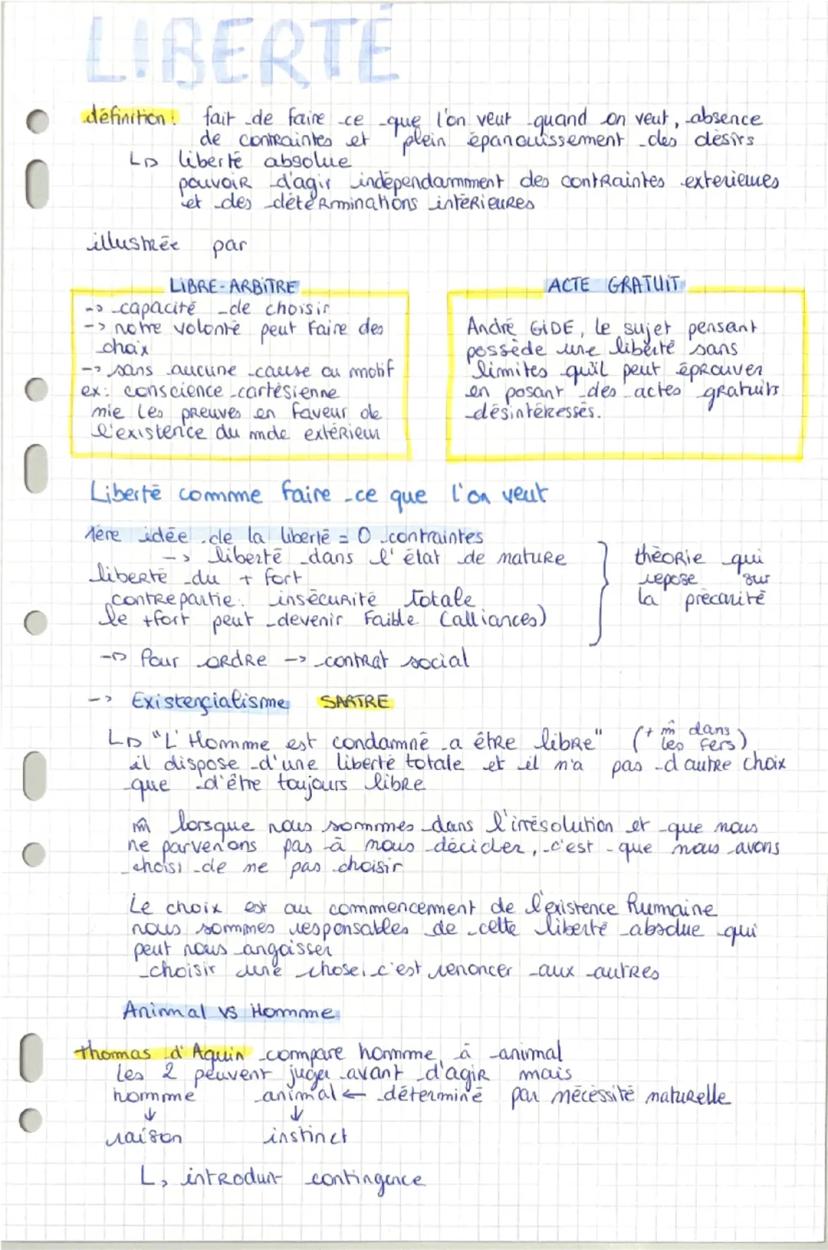 LIBERTÉ
définition: fait de faire ce que l'on veut quand on veut, absence
de contraintes et plein épanouissement des désirs
↳ liberté absolue
pouvoir d'agir indépendamment des contraintes exterieures
et des déterminations intérieures
illustrée par
LIBRE-ARBITRE
-> capacité de choisir
-> notre volonté peut faire des
choix
-> sans aucune cause ou motif
ex: conscience cartésienne
nie les preuves en faveur de
l'existence du mde extérieur
ACTE GRATUIT
André GIDE, le sujet pensant
possède une liberté sans
limites qu'il peut éprouver
en posant des actes gratuits
désintéressés.
Liberté comme faire ce que l'on veut
1ère idée de la liberté = 0 contraintes
-> liberté dans l'état de nature
liberté du + fort
contrepartie: insécurité totale
le + fort peut devenir faible (alliances)
théorie qui
repose sur
la précarité
-> Pour ordre -> contrat social
-> Existencialisme SARTRE
↳ "L'Homme est condamné a être libre" (+ m̂ dans
les fers)
il dispose d'une liberté totale et il n'a pas d'autre choix
que d'être toujours libre
m̂ lorsque nous sommes dans l'irrésolution et que nous
ne parvenons pas à nous décider, c'est que nous avons
choisi de ne pas choisir
Le choix est au commencement de l'existence humaine
nous sommes responsables de cette liberté absolue qui
peut nous angoisser
choisir une chose, c'est renoncer aux autres
Animal vs Homme
Thomas d'Aquin compare homme à animal
Les 2 peuvent juger avant d'agir mais
homme animal ← déterminé par nécessité naturelle
↓ ↓
raison instinct
↳ introduit contingence